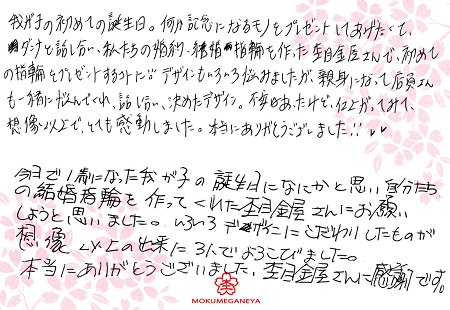 我が子の初めての誕生日。何か記念になるモノをプレゼントしてあげたくて、
ダンナと話し合い、私たちの婚約、結婚指輪を作った杢目金屋さんで、初めて
の指輪をプレゼントすることに!! デザインもいろいろ悩みましたが、親身になって店員さん
も一緒に悩んでくれ、話し合い、決めたデザイン。不安もあったけど、仕上がってみて、
想像以上で、とても感動しました。本当にありがとうございました!!
今日で1歳になった我が子の誕生日になにかと思い自分たち
の結婚指輪を作ってくれた杢目金屋さんにお願い
しようと思いました。いろいろデザインにこだわりしたものが
想像以上の出来に3人でよろこびました。
本当にありがとうございました。杢目金屋さんに感謝です。
MOKUMEGANEYA